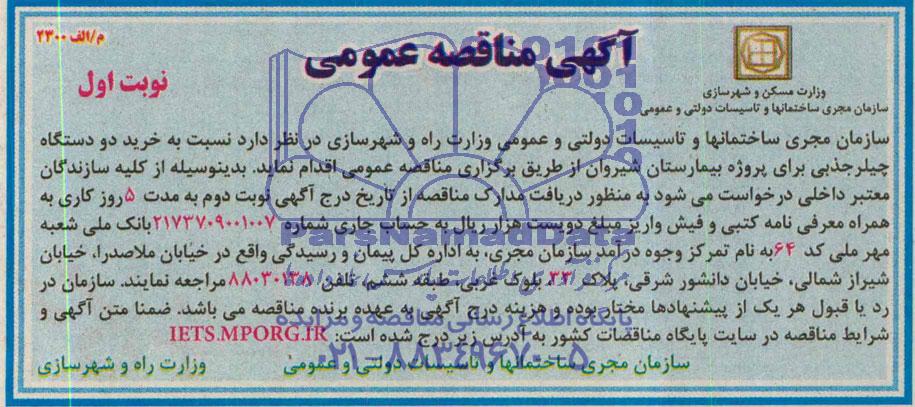 م/الف ۲۳۰۰
آگهی مناقصه عمومی
نوبت اول
وزارت مسکن و شهرسازی
سازمان مجری ساختمانها و تاسیسات دولتی و عمومی
سازمان مجری ساختمانها و تاسیسات دولتی و عمومی وزارت راه و شهرسازی در نظر دارد نسبت به خرید دو دستگاه
چیلرجذبی برای پروژه بیمارستان شیروان از طریق برگزاری مناقصه عمومی اقدام نماید. بدینوسیله از کلیه سازندگان
معتبر داخلی درخواست می شود به منظور دریافت مدارک مناقصه از تاریخ درج آگهی نوبت دوم به مدت ۵ روز کاری به
همراه معرفی نامه کتبی و فیش واریز مبلغ دویست هزار ریال به حساب جاری شماره ۲۱۷۳۷۰۹۰۰۱۰۰۷ بانک ملی شعبه
مهر ملی کد ۶۴ به نام تمرکز وجوه درآمد سازمان مجری، به اداره کل پیمان و رسیدگی واقع در خیابان ملاصدرا، خیابان
شیراز شمالی، خیابان دانشور شرقی، پلاک ۳۳، بلوک غربی، طبقه ششم، تلفن ۸۸۰۳۰۱۳۸ مراجعه نمایند. سازمان در
رد یا قبول هر یک از پیشنهادها مختار بوده و هزینه درج آگهی به عهده برنده مناقصه می باشد. ضمنا متن آگهی و
شرایط مناقصه در سایت پایگاه مناقصات کشور به آدرس زیر درج شده است: IETS.MPORG.IR
سازمان مجری ساختمانها و تاسیسات دولتی و عمومی وزارت راه و شهرسازی
ParsNamadData
پایگاه اطلاع رسانی مناقصه و مزایده
۰۲۱-۸۸۳۴۹۶۷۰-۵